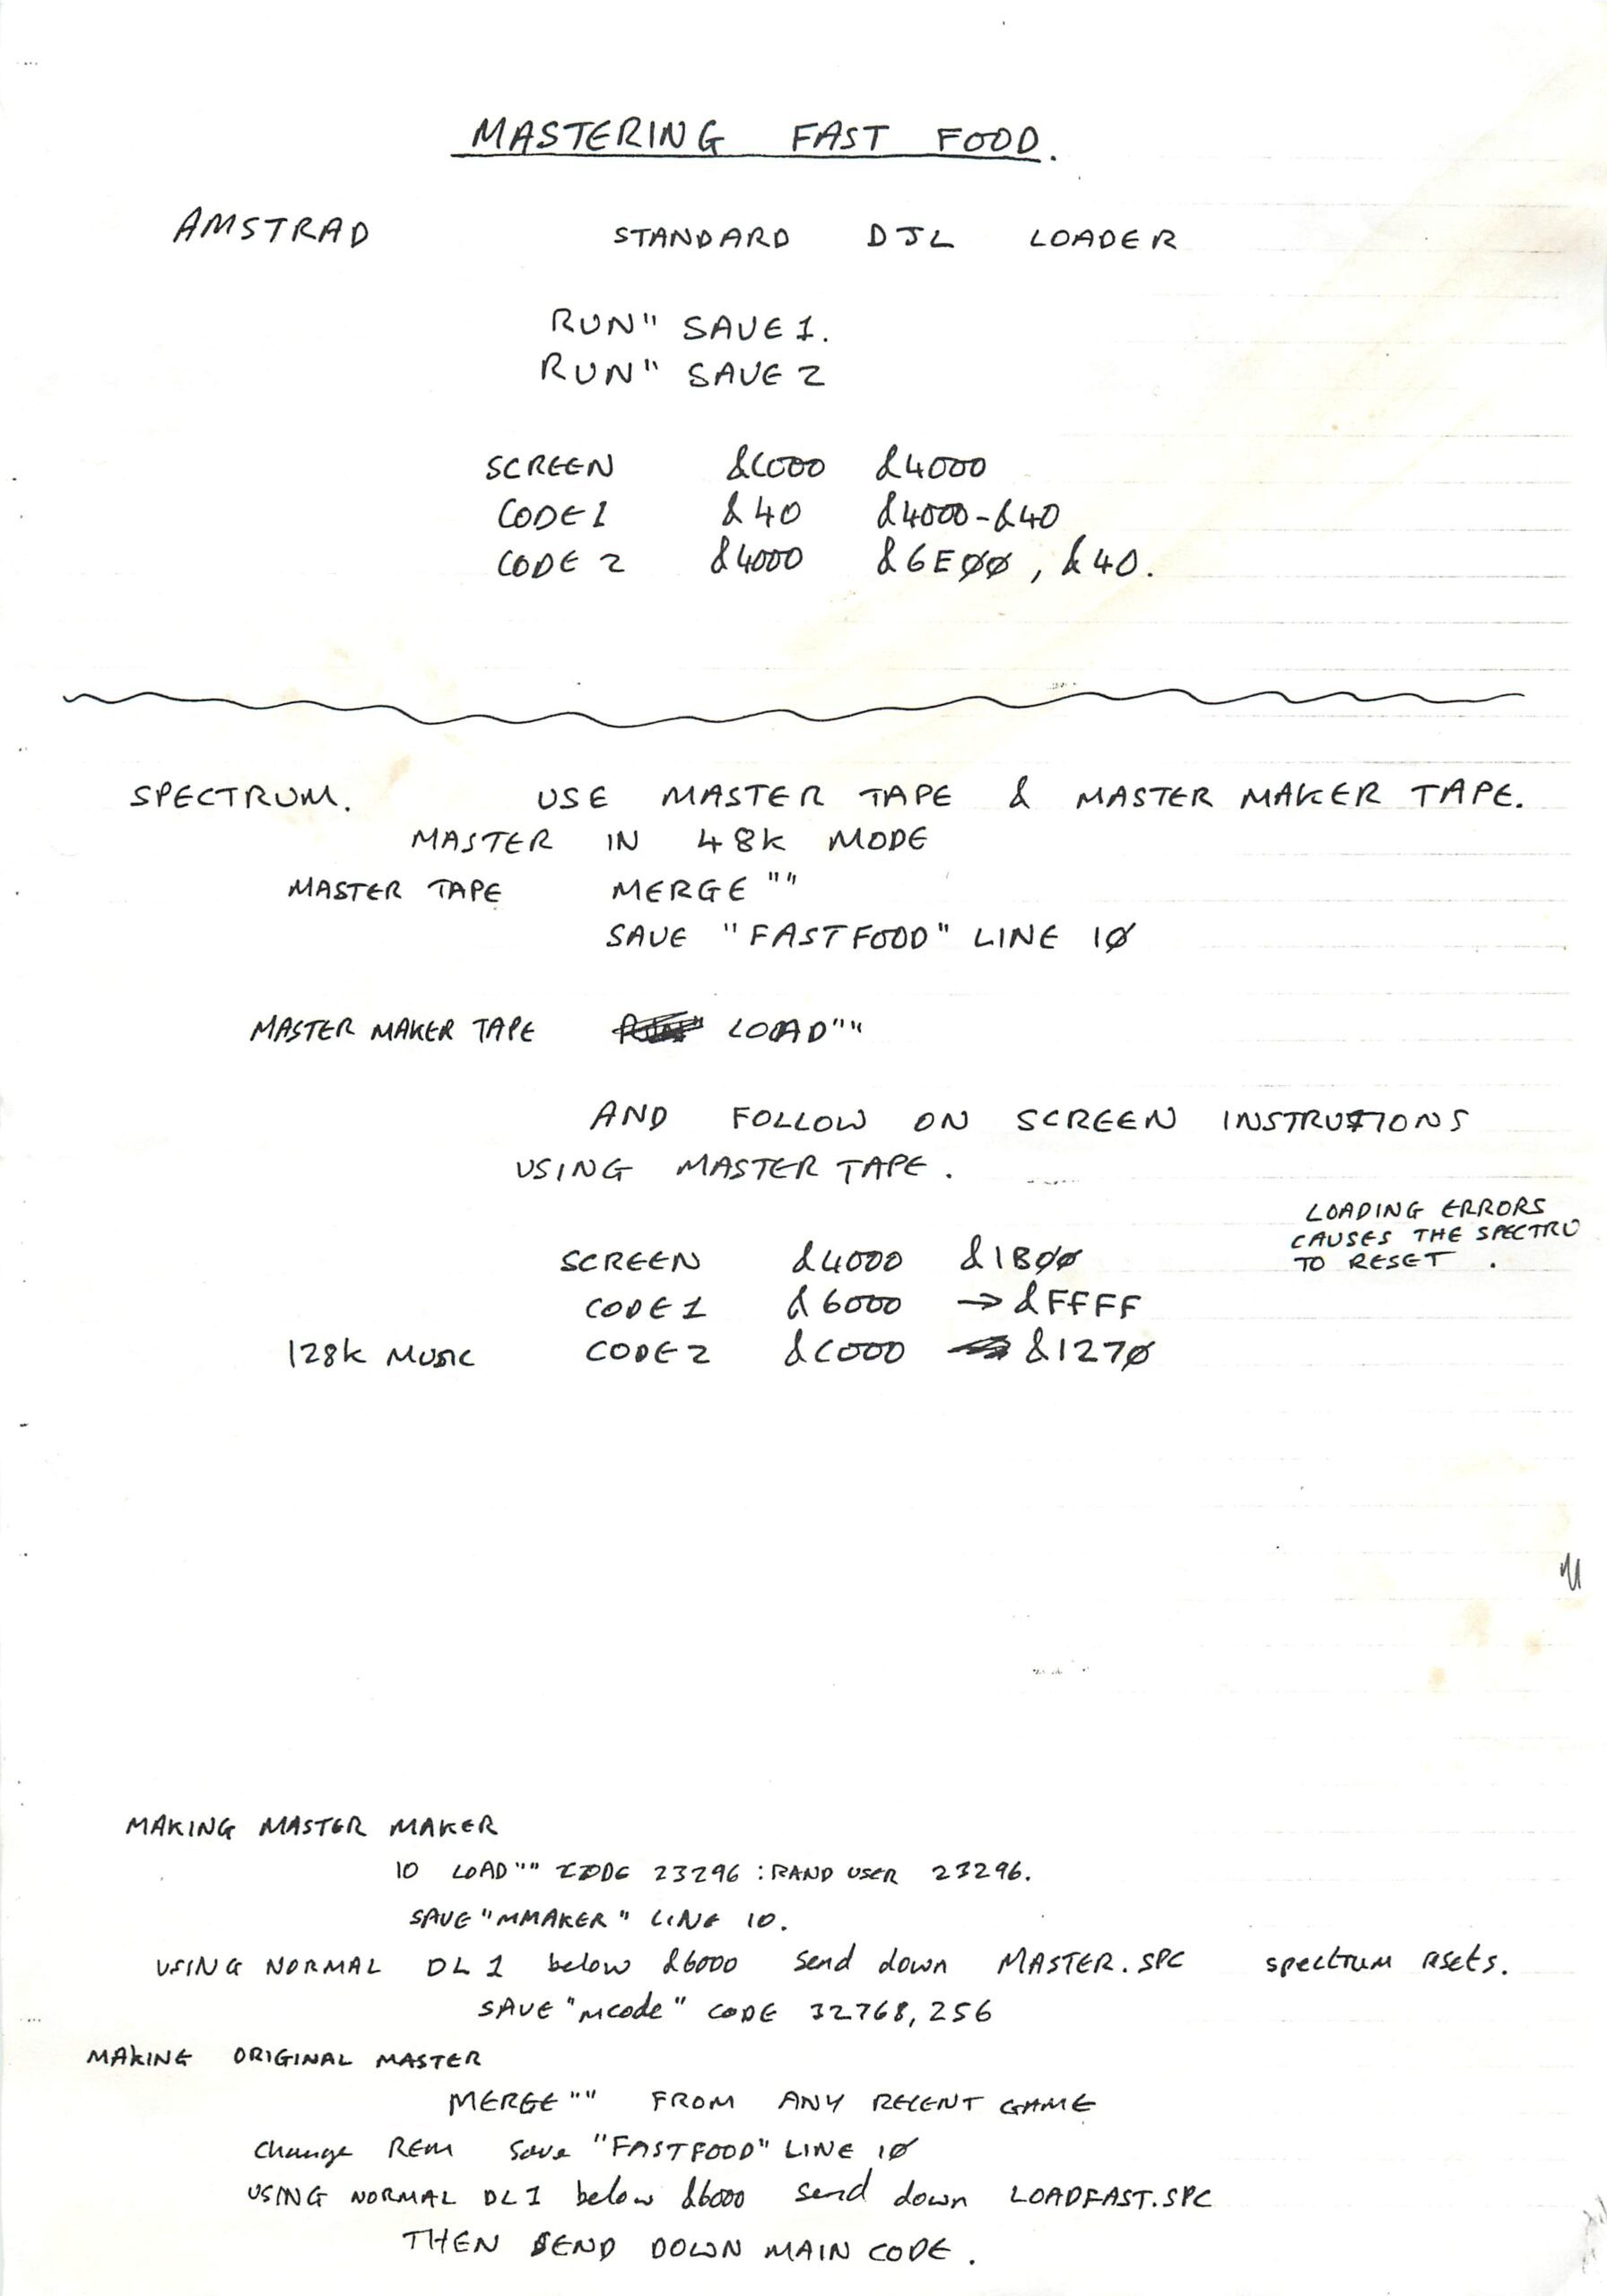 MASTERING FAST FOOD.
AMSTRAD STANDARD DJL LOADER
RUN" SAVE 1.
RUN" SAVE 2
SCREEN &C000 &4000
CODE 1 &40 &4000-&40
CODE 2 &4000 &6E00, &40.
SPECTRUM. USE MASTER TAPE & MASTER MAKER TAPE.
MASTER IN 48K MODE
MASTER TAPE MERGE ""
SAVE "FASTFOOD" LINE 10
MASTER MAKER TAPE LOAD""
AND FOLLOW ON SCREEN INSTRUTIONS
USING MASTER TAPE.
LOADING ERRORS
CAUSES THE SPECTRU
TO RESET .
SCREEN &4000 &1B00
CODE 1 &6000 → &FFFF
128K MUSIC CODE 2 &C000 &1270
MAKING MASTER MAKER
10 LOAD"" CODE 23296 : RAND USER 23296.
SAVE "MMAKER" LINE 10.
USING NORMAL DL 1 below &6000 send down MASTER.SPC spectrum resets.
SAVE "mcode" CODE 32768, 256
MAKING ORIGINAL MASTER
MERGE "" FROM ANY RECENT GAME
change REM save "FASTFOOD" LINE 10
USING NORMAL DL1 below &6000 send down LOADFAST.SPC
THEN SEND DOWN MAIN CODE.